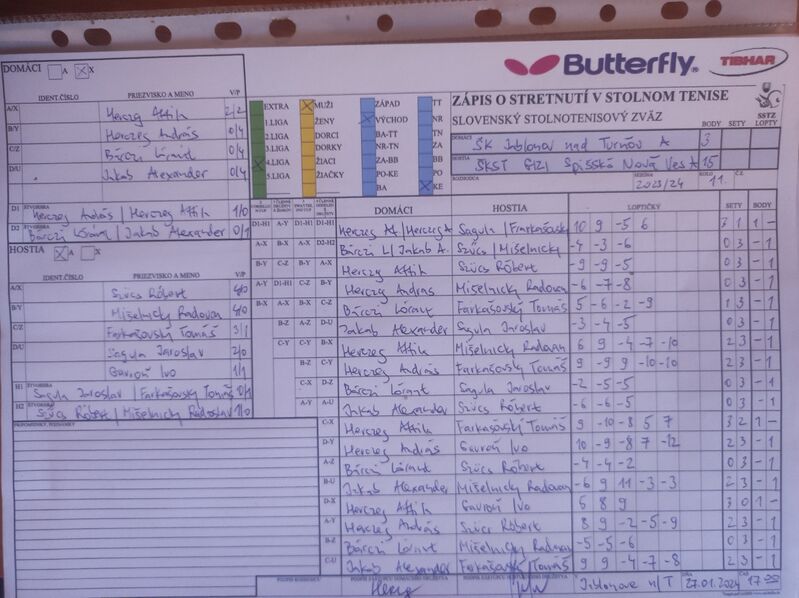 Butterfly
TIBHAR
DOMÁCI A X
IDENT.ČÍSLO PRIEZVISKO A MENO V/P
A/X Herczeg Attila 2/2
B/Y Herczeg András 0/4
C/Z Bárczi Lóránt 0/4
D/U Jakab Alexander 0/4
D1 ŠTVORHRA Herczeg András / Herczeg Attila 1/0
D2 Bárczi Lóránt / Jakab Alexander 0/1
HOSTIA A X
IDENT.ČÍSLO PRIEZVISKO A MENO V/P
A/X Szűcs Róbert 4/0
B/Y Mišelnický Radovan 4/0
C/Z Farkašovský Tomáš 3/1
D/U Sagula Jaroslav 2/0
Gavroň Ivo 1/1
H1 ŠTVORHRA Sagula Jaroslav / Farkašovský Tomáš 0/1
H2 ŠTVORHRA Szűcs Róbert / Mišelnický Radoslav 1/0
PRIPOMIENKY, POZNÁMKY
EXTRA MUŽI ZÁPAD TT
1.LIGA ŽENY VÝCHOD NR
2.LIGA DORCI BA-TT TN
3.LIGA DORKY NR-TN ZA
4.LIGA ŽIACI ZA-BB BB
5.LIGA ŽIAČKY PO-KE PO
BA KE
ZÁPIS O STRETNUTÍ V STOLNOM TENISE
SLOVENSKÝ STOLNOTENISOVÝ ZVÄZ
SSTZ
BODY SETY LOPTY
DOMÁCI ŠK Jablonov nad Turňou A 3
HOSTIA ŠKST GIZI Spišská Nová Ves A 15
ROZHODCA SEZÓNA 2023/24 KOLO 11. Č.
DOMÁCI HOSTIA LOPTIČKY SETY BODY
D1-H1 Herczeg At / Herczeg A Sagula / Farkašovsk 10 9 -5 6 3 1 1 -
Bárczi L / Jakab A. Szűcs / Mišelnický -4 -3 -6 0 3 - 1
Herczeg Attila Szűcs Róbert -9 -9 -5 0 3 - 1
Herczeg András Mišelnický Radovan -6 -7 -8 0 3 - 1
Bárczi Lórant Farkašovský Tomáš 5 -6 -2 -9 1 3 - 1
Jakab Alexander Sagula Jaroslav -3 -4 -5 0 3 - 1
Herczeg Attila Mišelnický Radovan 6 9 -4 -7 -10 2 3 - 1
Herczeg András Farkašovský Tomáš 9 -9 9 -10 -10 2 3 - 1
Bárczi Lórant Sagula Jaroslav -2 -5 -5 0 3 - 1
Jakab Alexander Szűcs Róbert -6 -6 -5 0 3 - 1
C-X Herczeg Attila Farkašovský Tomáš 9 -10 -8 5 7 3 2 1 -
D-Y Herczeg András Gavroň Ivo 10 -9 -8 7 -12 2 3 - 1
A-Z Bárczi Lórant Szűcs Róbert -4 -4 -2 0 3 - 1
B-U Jakab Alexander Mišelnický Radovan -6 9 11 -3 -3 2 3 - 1
D-X Herczeg Attila Gavroň Ivo 6 8 9 3 0 1 -
A-Y Herczeg András Szűcs Róbert 8 9 -2 -5 -9 2 3 - 1
B-Z Bárczi Lórant Mišelnický Radovan -5 -5 -6 0 3 - 1
C-U Jakab Alexander Farkašovský Tomáš 9 9 -4 -7 -8 2 3 - 1
PODPIS ROZHODCU PODPIS KAPITÁNA DOMÁCEHO DRUŽSTVA PODPIS KAPITÁNA HOSŤUJÚCEHO DRUŽSTVA Jablonove n/T DŇA 27.01.2024 ČAS 17 00